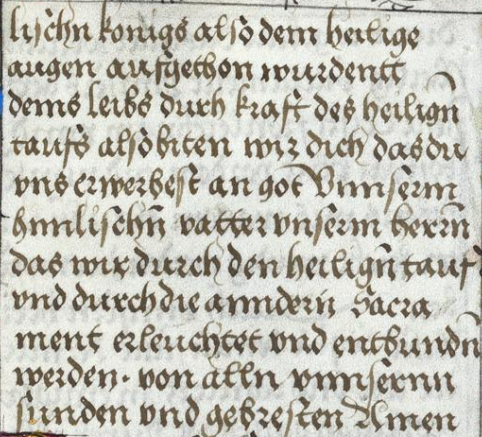 lischn konigs also dem heilige
augen aufgethon wurdentt
deins leibs durch kraft des heilign̄
taufs also biten wir dich das du
vns erwerbest an got Vnnserm
himlischn̄ vatter vnserm herrn̄
das wir durch den heilign̄ tauf
vnd durch die anndern̄ Sacra
ment erleuchtet vnd entbundn̄
werden · von alln vnnsernn
sunden vnd gebresten Amen